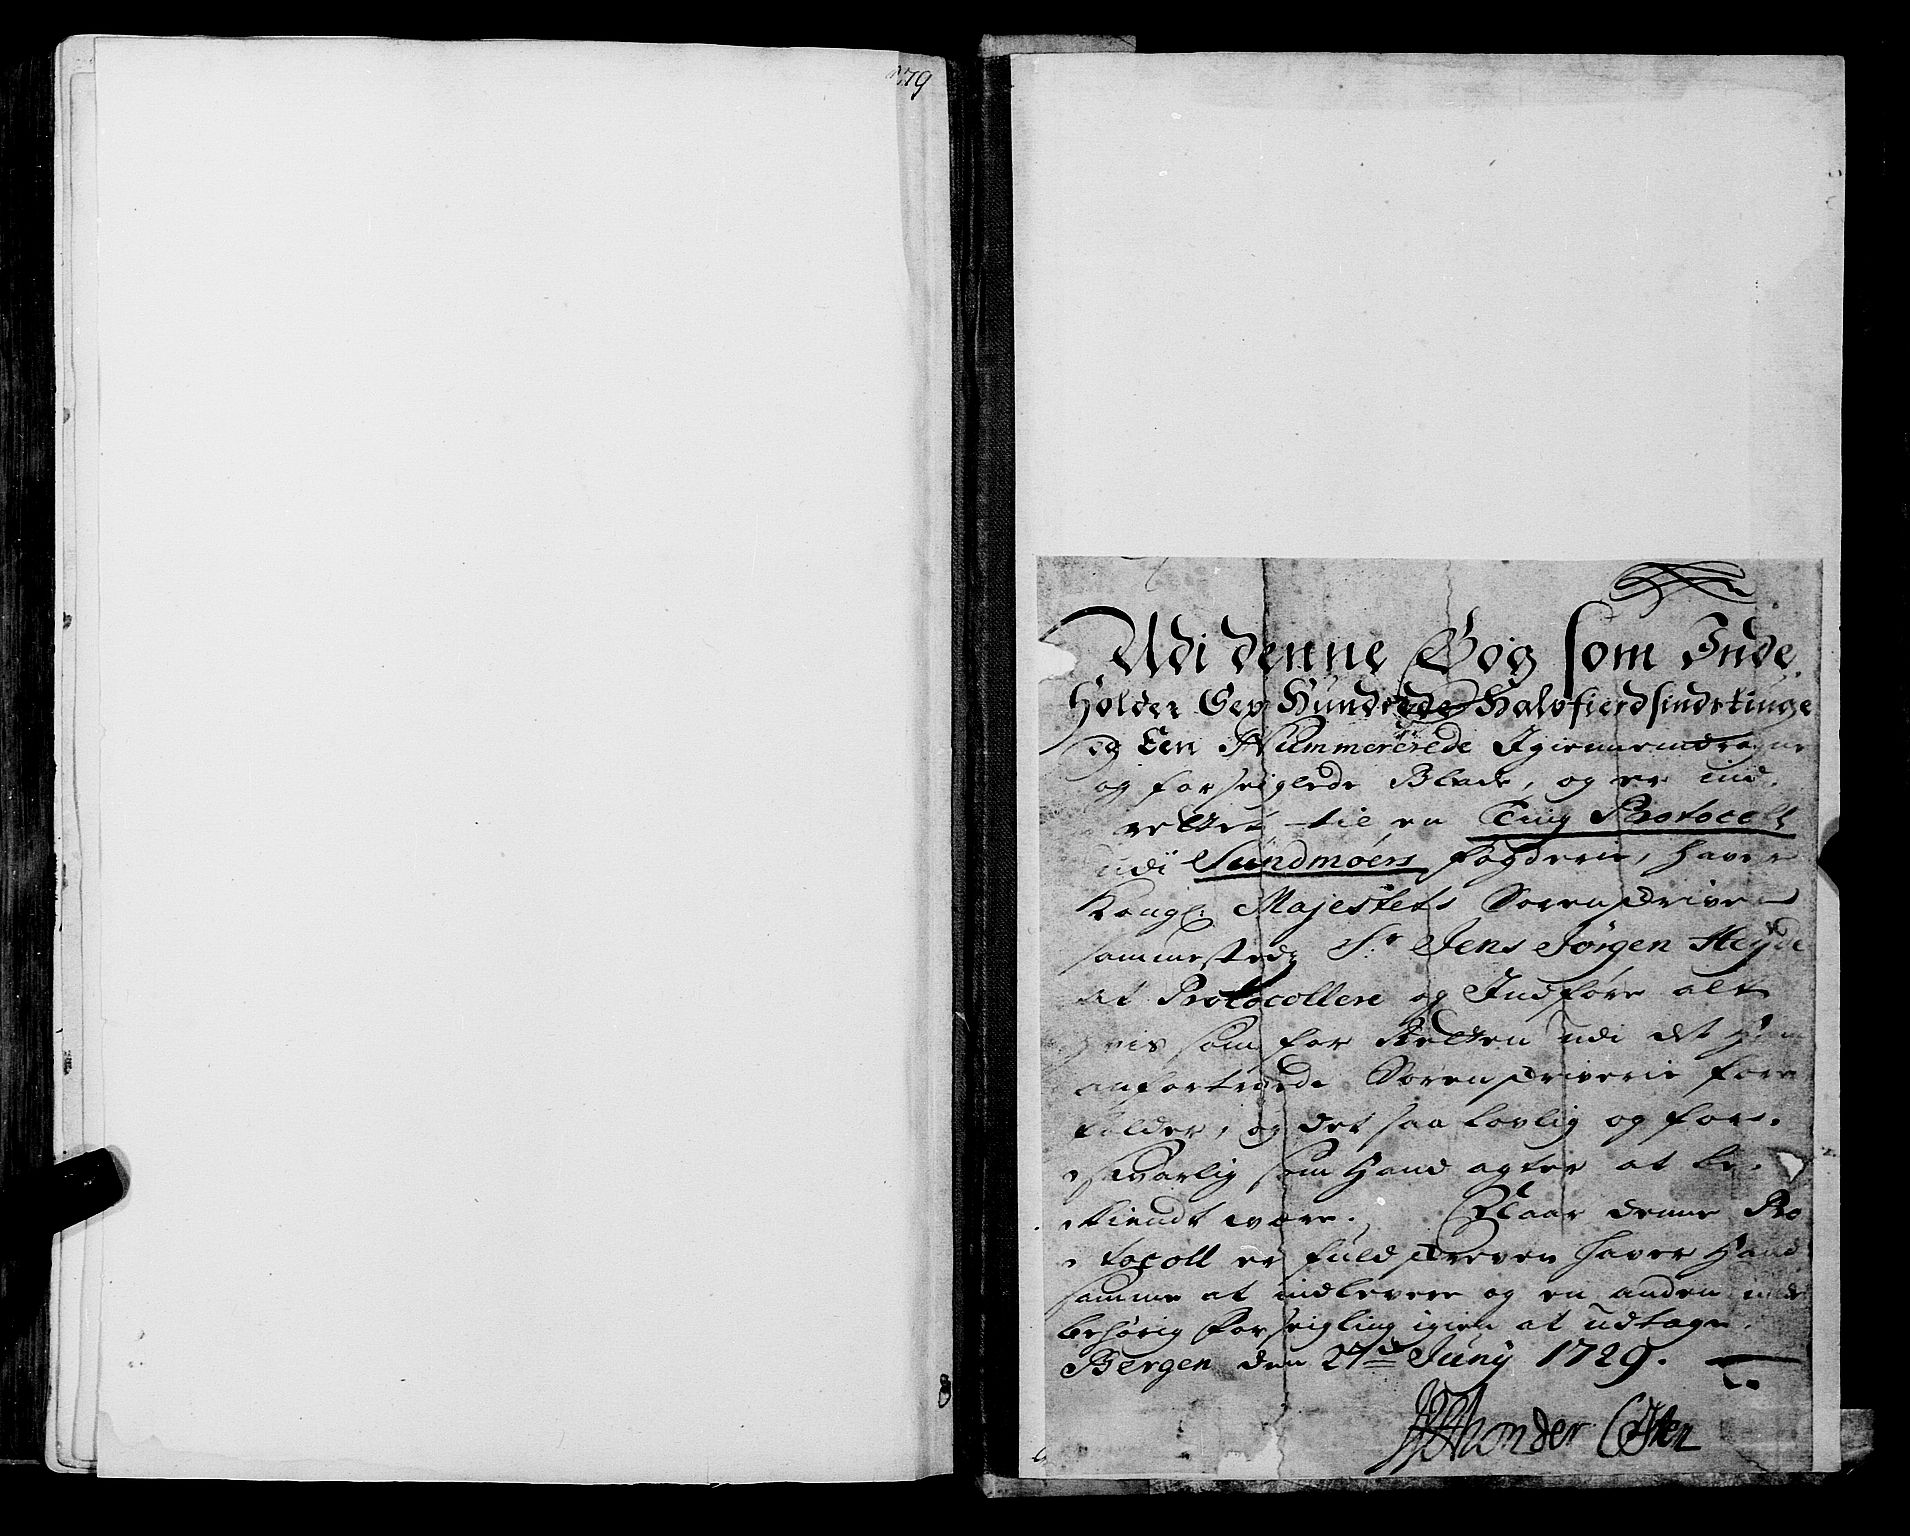 279
Udi denne Bog som Inde
Holder Hundrede Halvfierdsindstiuge
og Een Nummererede Igiennemdragne
og forseiglede Blade, og er ind-
rettet til en Ting Protocoll
udi Sundmøers fogderie, haver
Kongl. Majestets Sorenskriver
sammesteds Sr. Jens Jørgen Heyde
at Protocollere og Indføre alt
hvis som for Retten udi det Ham
anfortroede Sorenskriverie fore
falder, og det saa lovlig og for-
svarlig som Hand agter at be-
kiendt være. Naar denne Pro
tocoll er fuldskreven haver Hand
samme at indlevere og en anden under
behørig forseigling igien at udtage.
Bergen den 27de Junij 1729.